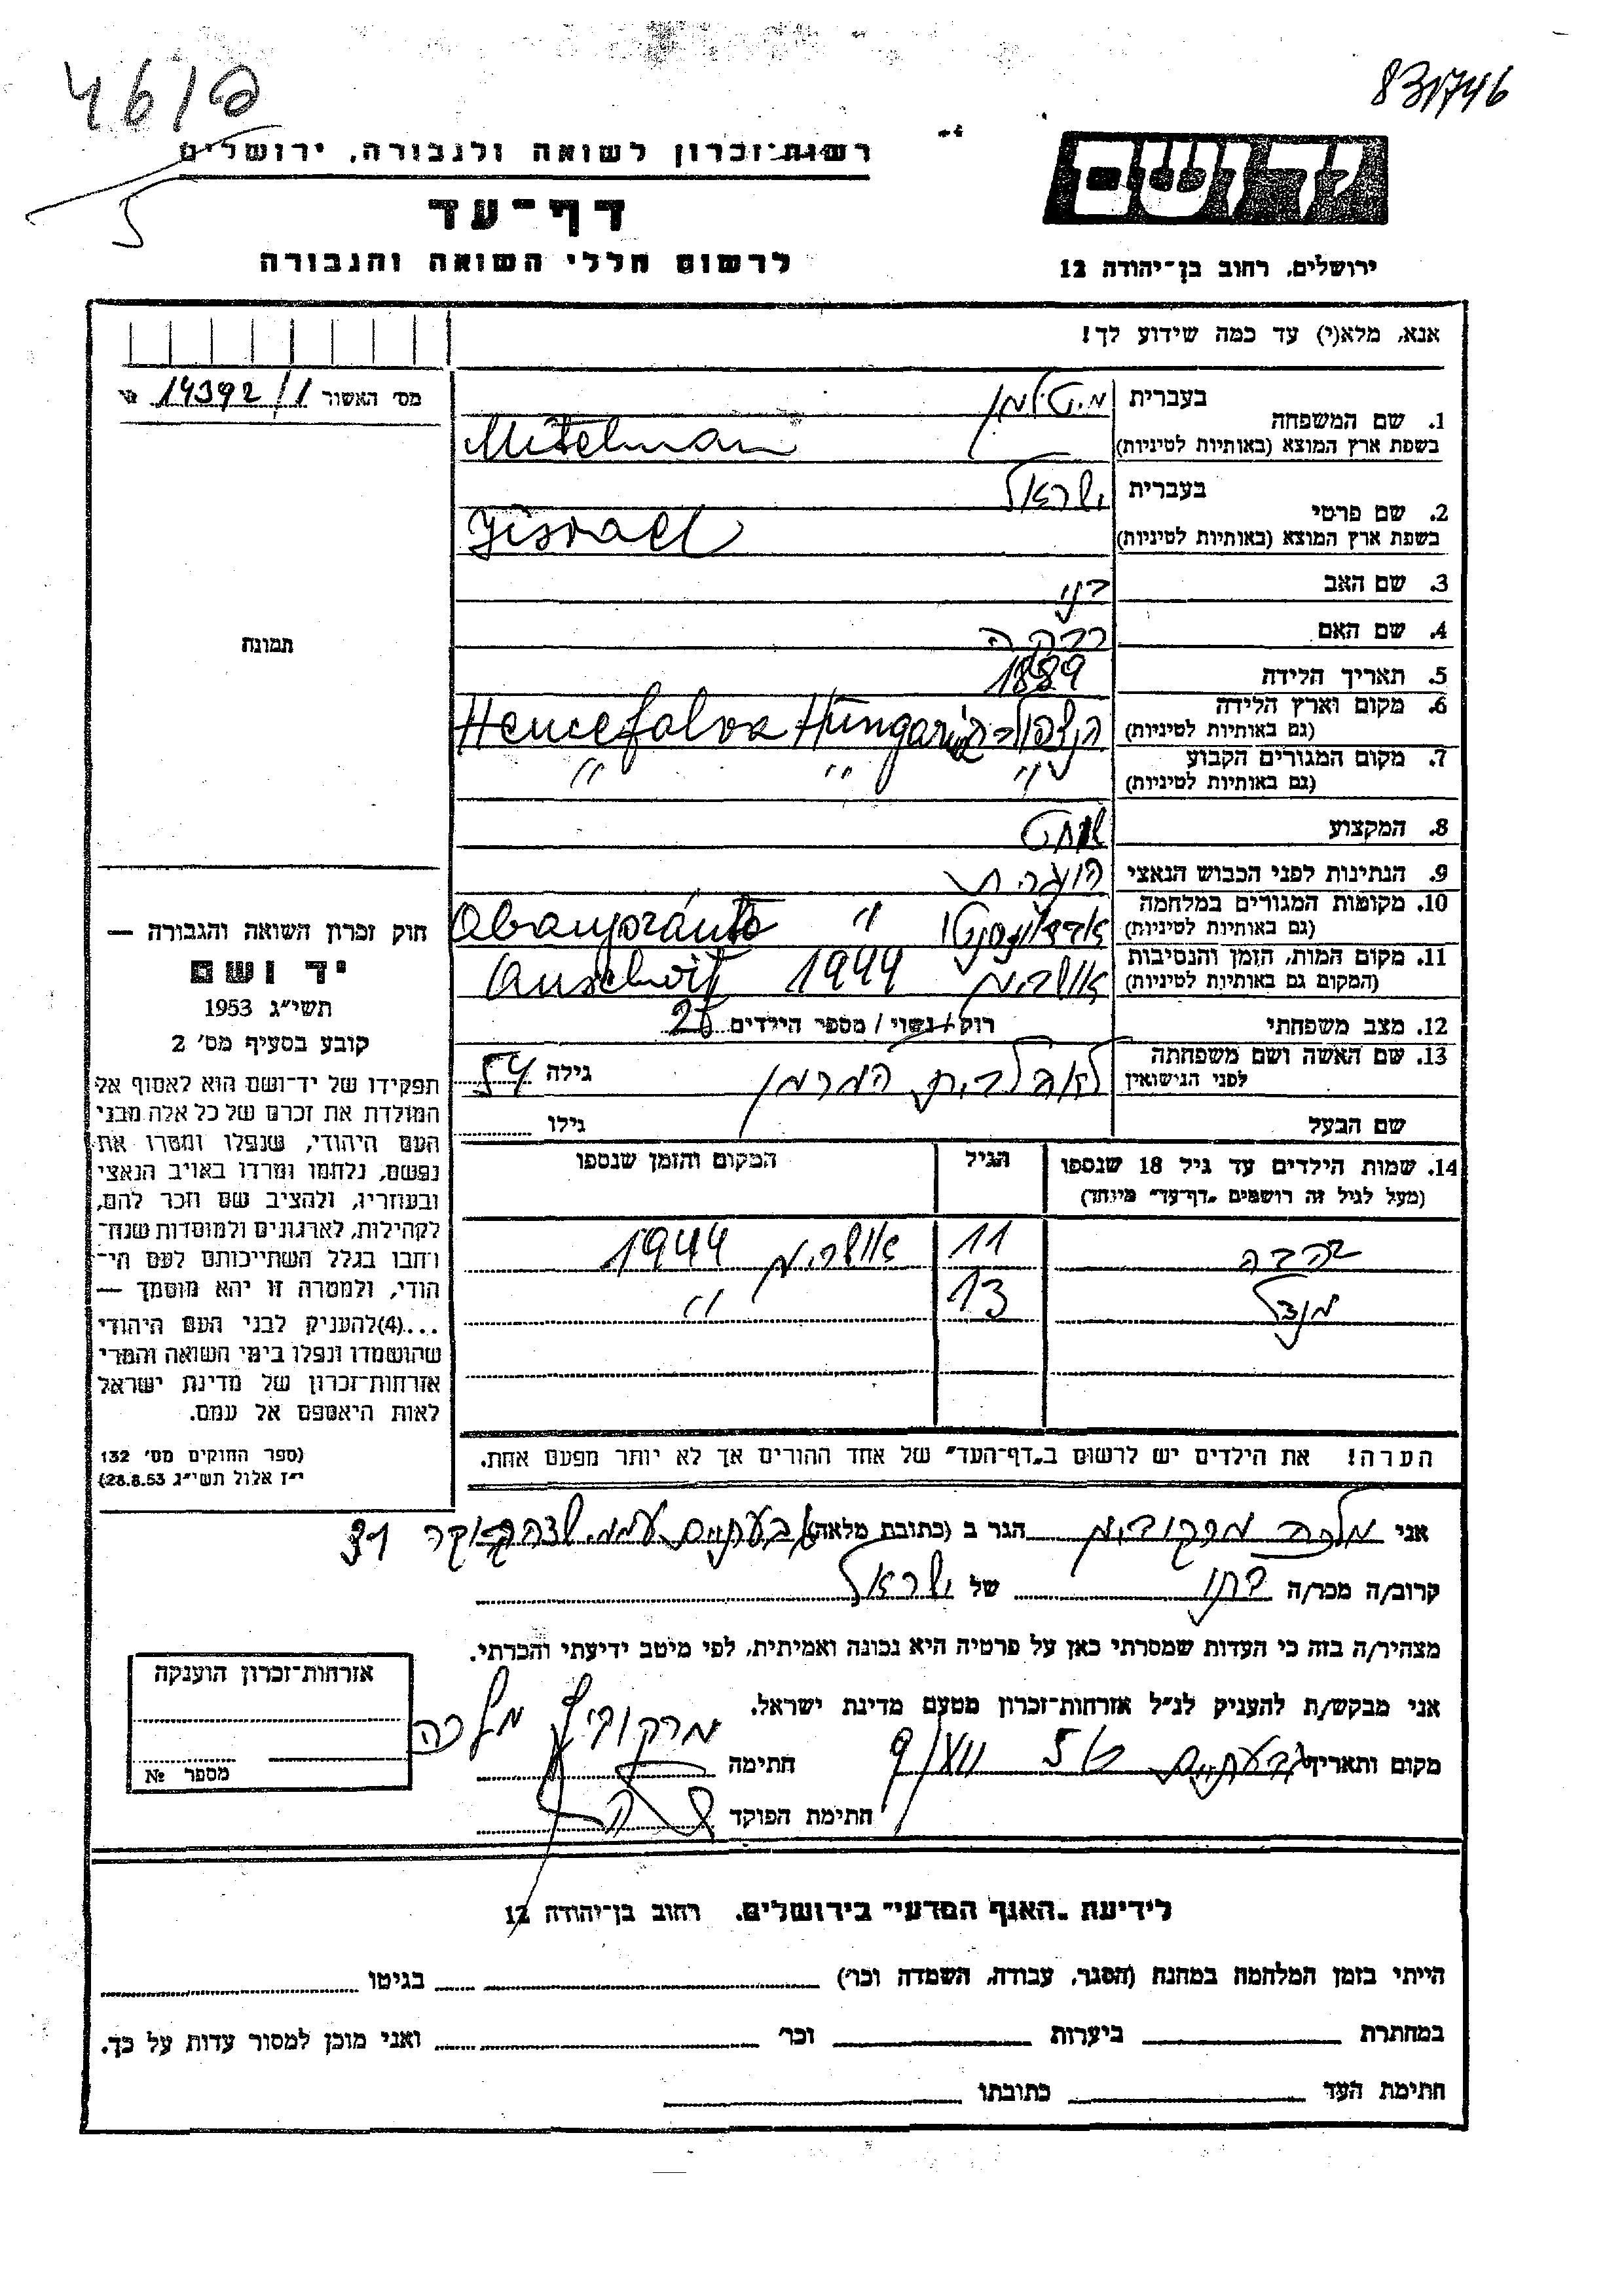 4619
831746
רשות־זכרון לשואה ולגבורה, ירושלים
דף־עד
לרשום חללי השואה והגבורה
יד ושם
ירושלים, רחוב בן־יהודה 12
אנא, מלא(י) עד כמה שידוע לך!
מס׳ האשור 14392/1
בעברית מיטלמן
1. שם המשפחה
בשפת ארץ המוצא (באותיות לטיניות) Mitelman
בעברית ישראל
2. שם פרטי
בשפת ארץ המוצא (באותיות לטיניות) Jisrael
3. שם האב
4. שם האם רבקה
5. תאריך הלידה 1889
6. מקום וארץ הלידה Hencefalva Hungari
(גם באותיות לטיניות)
7. מקום המגורים הקבוע " " "
(גם באותיות לטיניות)
8. המקצוע שוחט
9. הנתינות לפני הכבוש הנאצי הונגרית
10. מקומות המגורים במלחמה Abaujszántó "
(גם באותיות לטיניות)
11. מקום המות, הזמן והנסיבות אושביץ 1944 Auschwitz
(המקום גם באותיות לטיניות)
12. מצב משפחתי רווק/נשוי/מספר הילדים
13. שם האשה ושם משפחתה לפני הנישואין לבית גילה 54
שם הבעל גילו
14. שמות הילדים עד גיל 18 שנספו הגיל המקום והזמן שנספו
(מעל לגיל זה רושמים „דף־עד״ מיוחד)
11 אושביץ 1944
מנדל 13 "
הערה! את הילדים יש לרשום ב„דף־העד״ של אחד ההורים אך לא יותר מפעם אחת.
תמונה
חוק זכרון השואה והגבורה —
יד ושם
תשי״ג 1953
קובע בסעיף מס׳ 2
תפקידו של יד־ושם הוא לאסוף אל
המולדת את זכרם של כל אלה מבני
העם היהודי, שנפלו ומסרו את
נפשם, נלחמו ומרדו באויב הנאצי
ובעוזריו, ולהציב שם וזכר להם,
לקהילות, לארגונים ולמוסדות שנח־
רבו בגלל השתייכותם לעם הי־
הודי, ולמטרה זו יהא מוסמך —
...(4) להעניק לבני העם היהודי
שהושמדו ונפלו בימי השואה והמרי
אזרחות־זכרון של מדינת ישראל
לאות היאספם אל עמם.
(ספר החוקים מס׳ 132
י״ז אלול תשי״ג 28.8.53)
אני מלכה מרקוביץ הגר ב (כתובת מלאה) גבעתיים 31
קרוב/ה מכר/ה בתו של ישראל
מצהיר/ה בזה כי העדות שמסרתי כאן על פרטיה היא נכונה ואמיתית, לפי מיטב ידיעתי והכרתי.
אני מבקש/ת להעניק לנ״ל אזרחות־זכרון מטעם מדינת ישראל.
מקום ותאריך גבעתיים חתימה מרקוביץ מלכה
חתימת הפוקד
אזרחות־זכרון הוענקה
מספר №
לידיעת „האגף המדעי״ בירושלים. רחוב בן־יהודה 12
הייתי בזמן המלחמה במחנה (הסגר, עבודה, השמדה וכו׳) בגיטו
במחתרת ביערות וכו׳ ואני מוכן למסור עדות על כך.
חתימת העד כתובתו